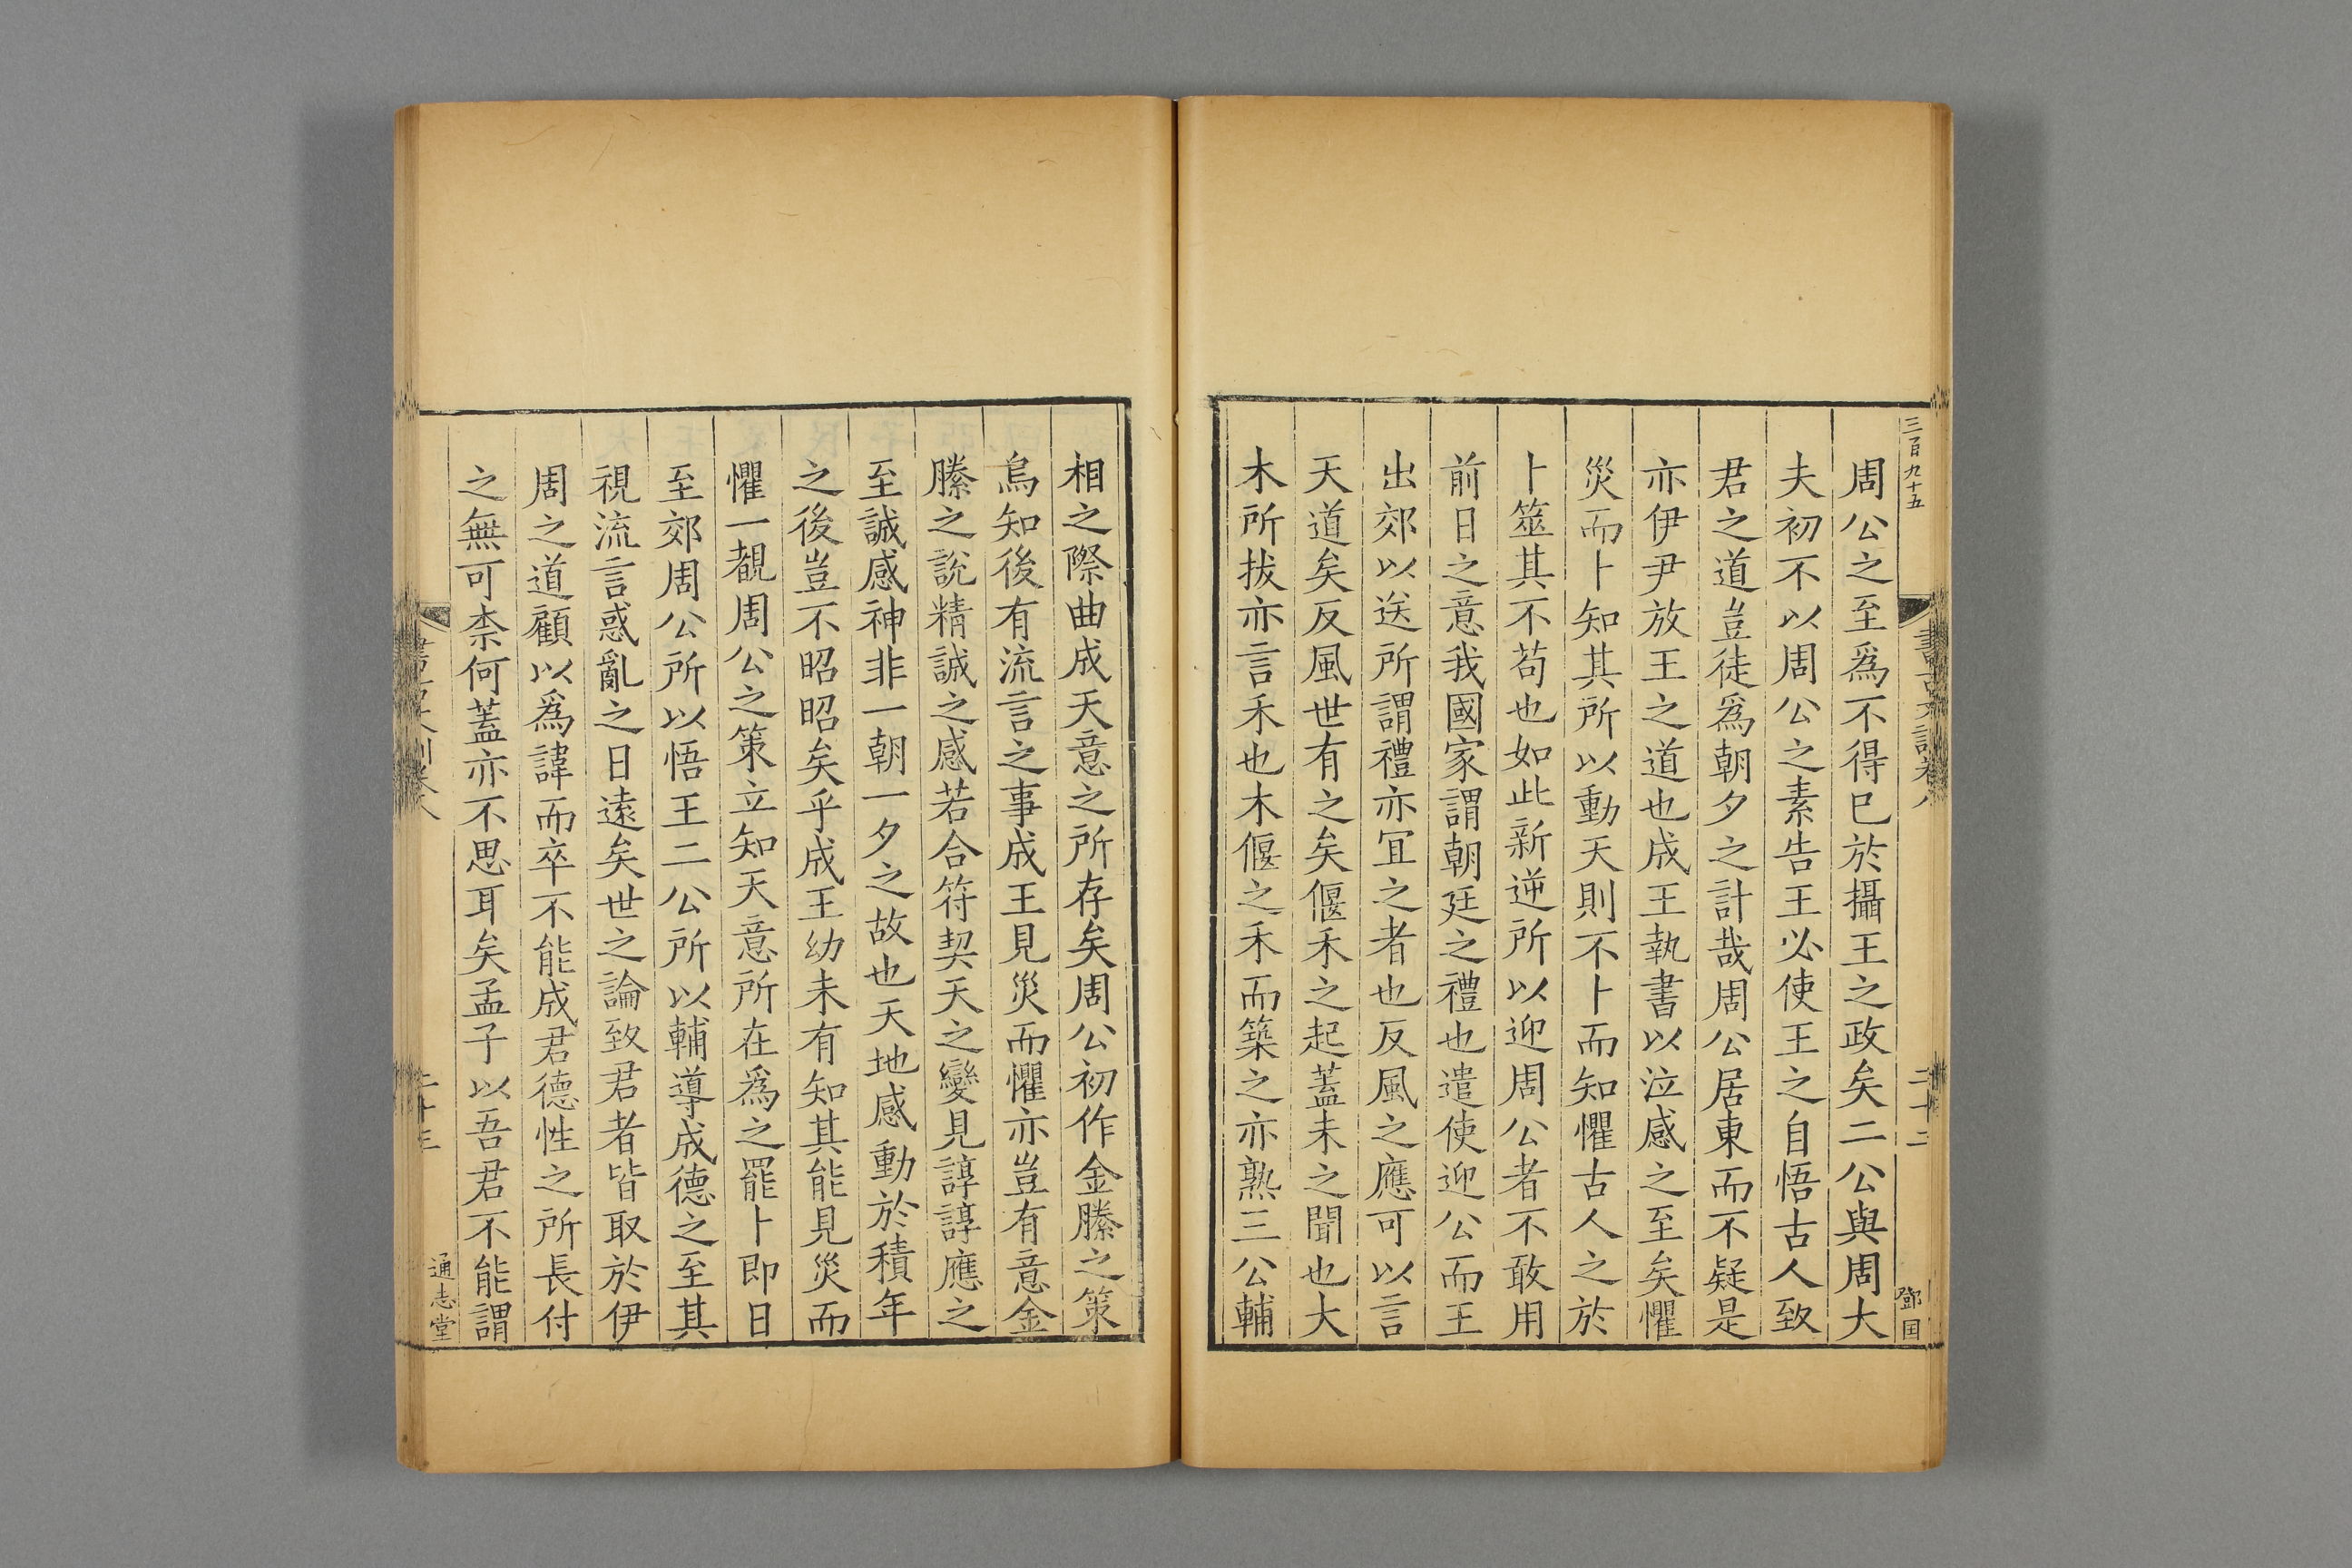 三百九十五
書古文訓卷八
二十二
鄧国
周公之至爲不得已於攝王之政矣二公與周大
夫初不以周公之素告王必使王之自悟古人致
君之道豈徒爲朝夕之計哉周公居東而不疑是
亦伊尹放王之道也成王執書以泣感之至矣懼
災而卜知其所以動天則不卜而知懼古人之於
卜筮其不苟也如此新逆所以迎周公者不敢用
前日之意我國家謂朝廷之禮也遣使迎公而王
出郊以送所謂禮亦冝之者也反風之應可以言
天道矣反風世有之矣偃禾之起蓋未之聞也大
木所拔亦言禾也木偃之禾而築之亦熟三公輔
相之際曲成天意之所存矣周公初作金縢之策
烏知後有流言之事成王見災而懼亦豈有意金
縢之說精誠之感若合符契天之變見諄諄應之
至誠感神非一朝一夕之故也天地感動於積年
之後豈不昭昭矣乎成王幼未有知其能見災而
懼一覩周公之策立知天意所在爲之罷卜即日
至郊周公所以悟王二公所以輔導成德之至其
視流言惑亂之日遠矣世之論致君者皆取於伊
周之道顧以爲諱而卒不能成君德性之所長付
之無可柰何蓋亦不思耳矣孟子以吾君不能謂
書古文訓卷八
二十三
通志堂